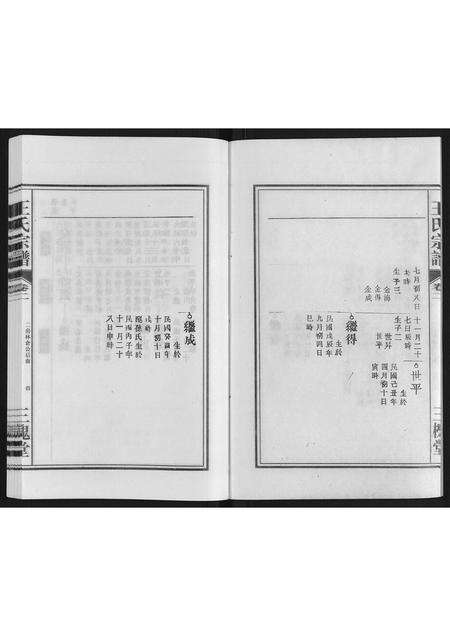 王氏宗譜
卷二
三槐堂
七月初八日
未時
生子三
金海
金得
金成
十一月二十
七日辰時
生子二
世昇
世平
世平
生於
民國己丑年
四月初十日
寅時
繼得
生於
民國戊辰年
九月初四日
巳時
繼成
生於
民國癸酉年
十月初十日
戌時
配孫氏生於
民國丙子年
十一月二十
八日申時
王氏宗譜
卷二
三槐堂